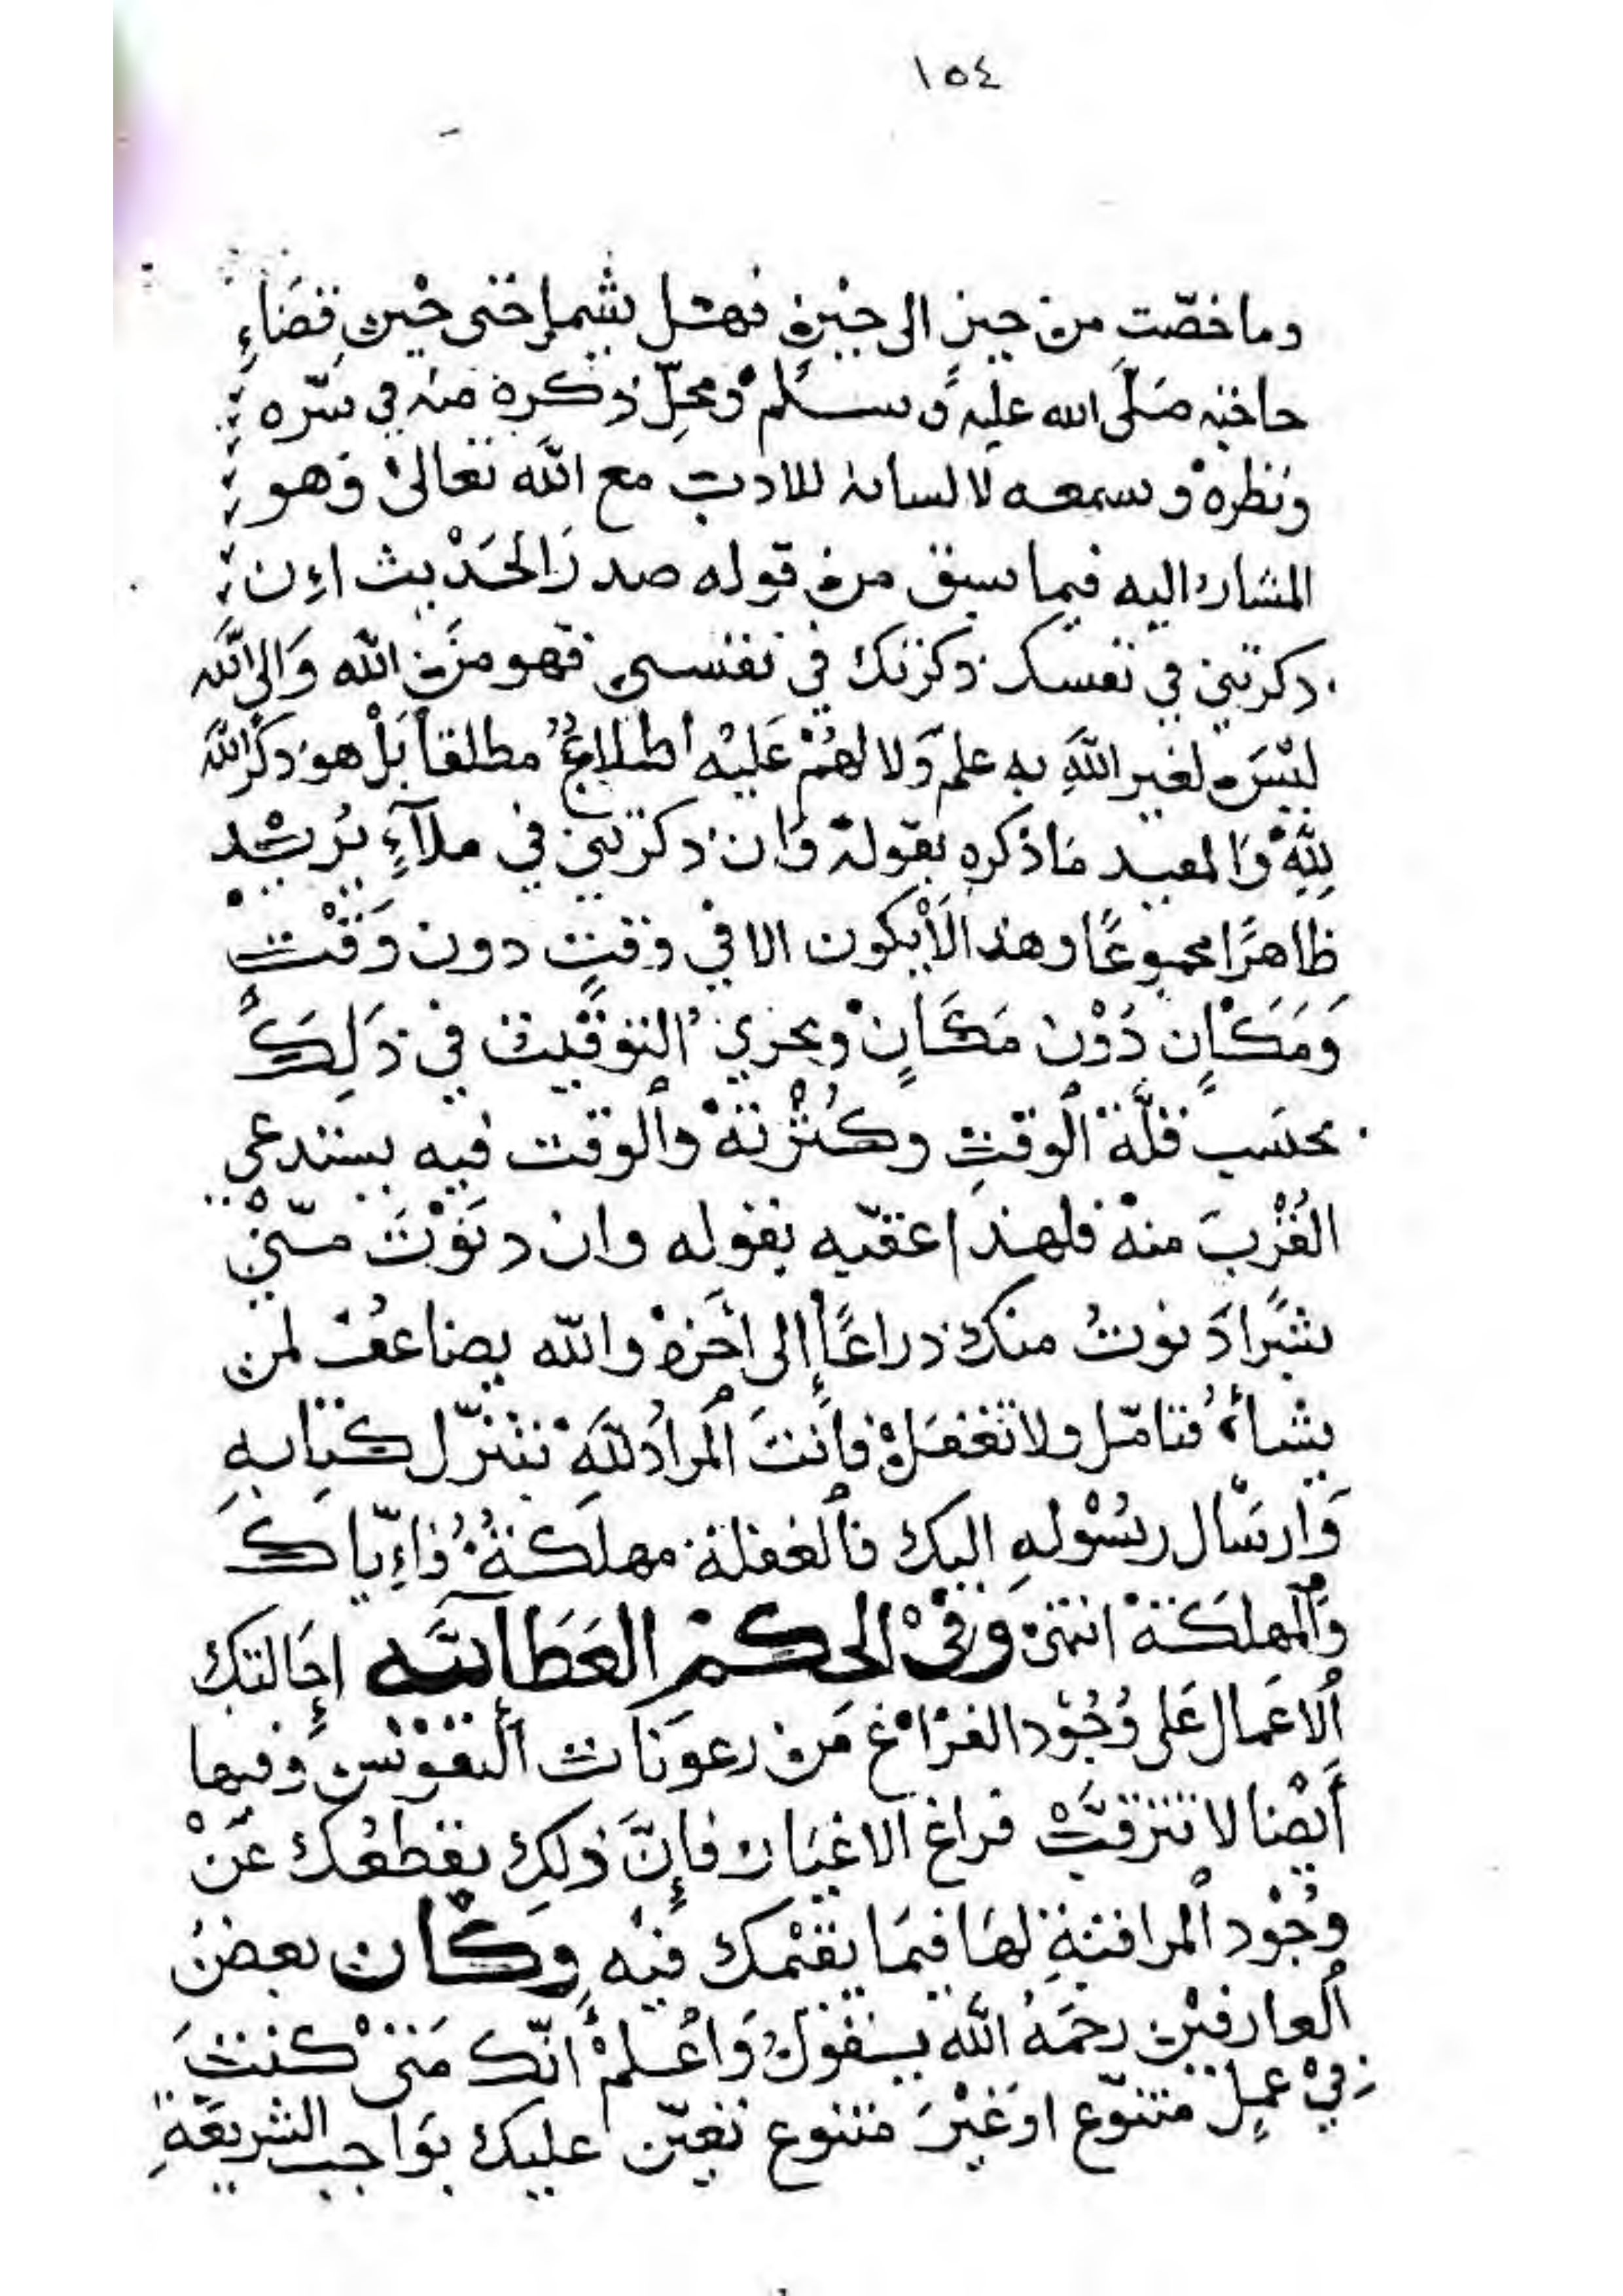 ١٥٤
وما خصّت من حين الى حين فهشل يشمل حتى حين قضاءِ
حاجته صَلَّى الله عليه وَسلم ومحلّ ذكره منه في سرّه
ونظره وسمعه لا لسانه للادب مع الله تعالى وَهو
المشار اليه فيما سبق من قوله صدرَ الحَدْيث اءِن
ذكرتني في نفسك ذكرتك في نفسي فهو مِنَ الله وَالى اللَّه
ليْسَ لغير اللهِ به علم وَلا لهُمْ عَليْه اطلاعٌ مطلقاً بَلْ هو ذكرُ الله
لِلّهِ وَالمعيد مَا ذكره بقوله وَان ذكرتني في ملآءٍ يُرشد
ظاهرًا مجموعًا وهذا لَايكون الا في وقتٍ دون وَقْتٍ
وَمَكَانٍ دُوْن مَكَانٍ ويجري التوقيت في ذَلِكَ
بحسَب قلّة الوقتِ وكُثْرته والوقت فيه يستدعي
القُرْبَ منه فلهذا عقّبه بقوله وان دنَوْتَ منّيْ
شبرًا دَنوتُ منك ذراعًا إلى اخَره والله يضاعفُ لمن
يشاءُ فتامّل ولا تغفَلْ فأنتَ المرادُ للهِ بتنزّل كتابهِ
وَارسَال رسُوْلهِ اليك فألغفلة مهلكَةٌ فاءِيّاكَ
وَالمهلكَة انتهى وَفيْ الحكمْ العَطَآئيَّه إحَالتك
ألاعمَال عَلى وُجُوْد الفرَاغ مَن رعوَنات ألنفوْس وَفيها
أيْضا لا تترقبْ فراغ الاغيَار فإنَّ ذلِك يقطعُك عَنْ
وُجُوْد المراقبةِ لهَا فيمَا يقيْمك فيْه وكَان بعضُ
العارفيْن رحمَهُ اللّه يقولُ وَاعْلمْ أنّك مَتىْ كنتَ
فيْ عملٍ متنوّع اوَغيْرَ متنوع تعيّن عليك بوَاجب الشريعَةِ